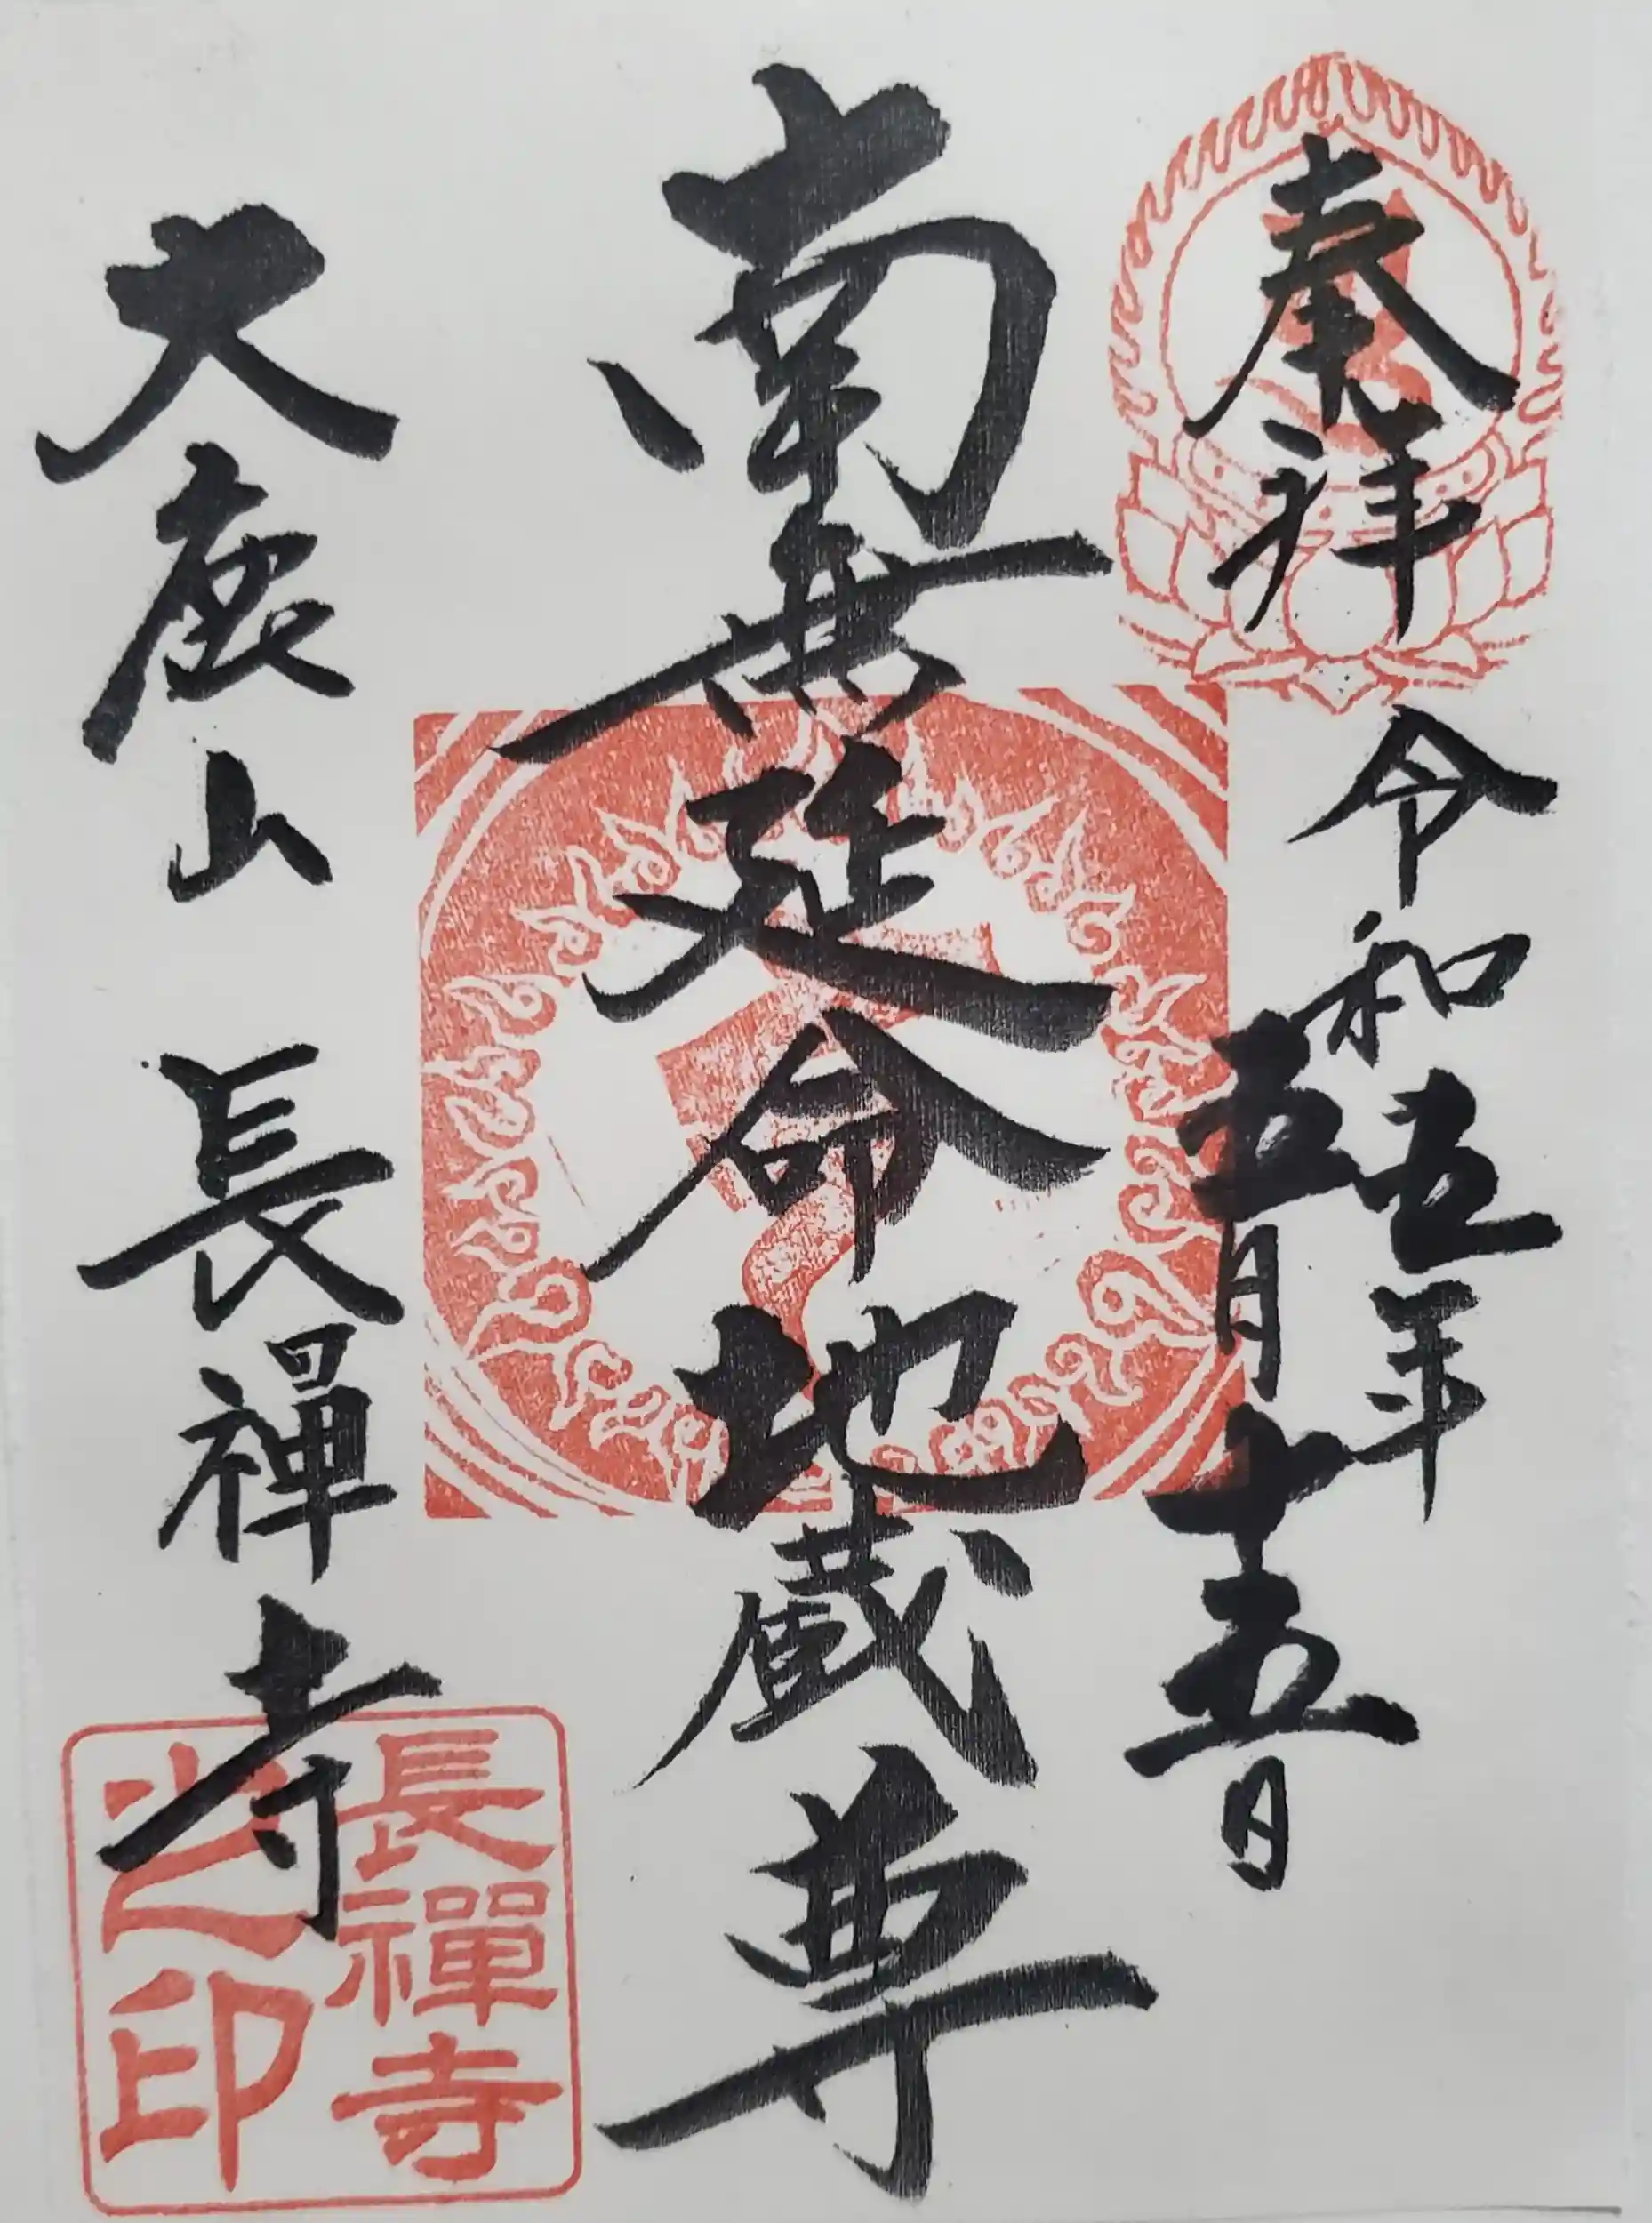 奉拝
令和五年
五月十五日
南無延命地蔵尊
大鹿山 長禪寺
長禪寺
之印